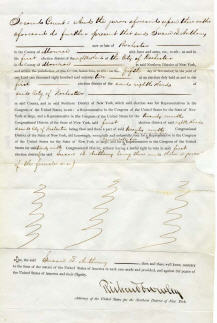 Second Count: And the jurors aforesaid upon their oaths
aforesaid do further present that said Susan B. Anthony
now or late of Rochester
in the County of Monroe with force and arms, etc., to-wit: at and in
first election district of eighth ward of the City of Rochester
in the County of Monroe in said Northern District of New York,
and within the jurisdiction of this Court, heretofore, to-wit: on the fifth day of November, in the year of
our Lord one thousand eight hundred and seventy-two, at an election duly held at and in the
first election district of the said eighth ward
said City of Rochester
in said County, and in said Northern District of New York, which said election was for Representatives in the
Congress of the United States, to-wit: a Representative in the Congress of the United States for the State of New
York at large, and a Representative in the Congress of the United States for the twenty-ninth
Congressional District of the State of New York, said first election district of said eighth ward
said City of Rochester being then and there a part of said twenty-ninth Congressional
District of the State of New York, did knowingly, wrongfully and unlawfully vote for a Representative in the
Congress of the United States for the State of New York at large, and for a Representative in the Congress of the
United States for said twenty-ninth Congressional district, without having a lawful right to vote in said
election district
said Susan B. Anthony being then and there a person
of the female sex
said Susan B. Anthony then and there well knew, contrary
to the form of the statute of the United States of America in such case made and provided, and against the peace of
the United States of America and their dignity.
Richard Crowley
Attorney of the United States for the Northern District of New York.